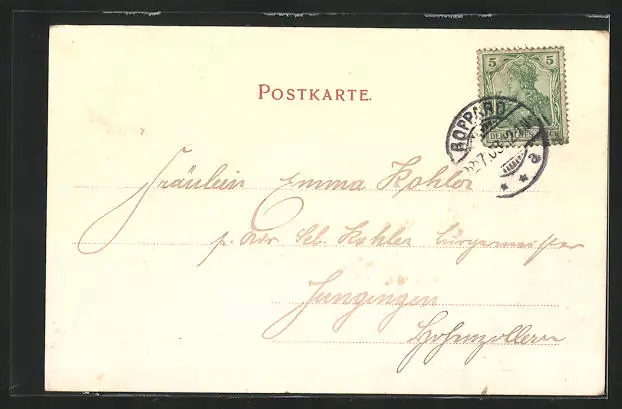 POSTKARTE.
5 5
DEUTSCHES REICH
BOPPARD
7.03
* * a
Fräulein Emma Kohler
p. Adr. Seb. Kohler Bürgermeister
Jungingen
Hohenzollern